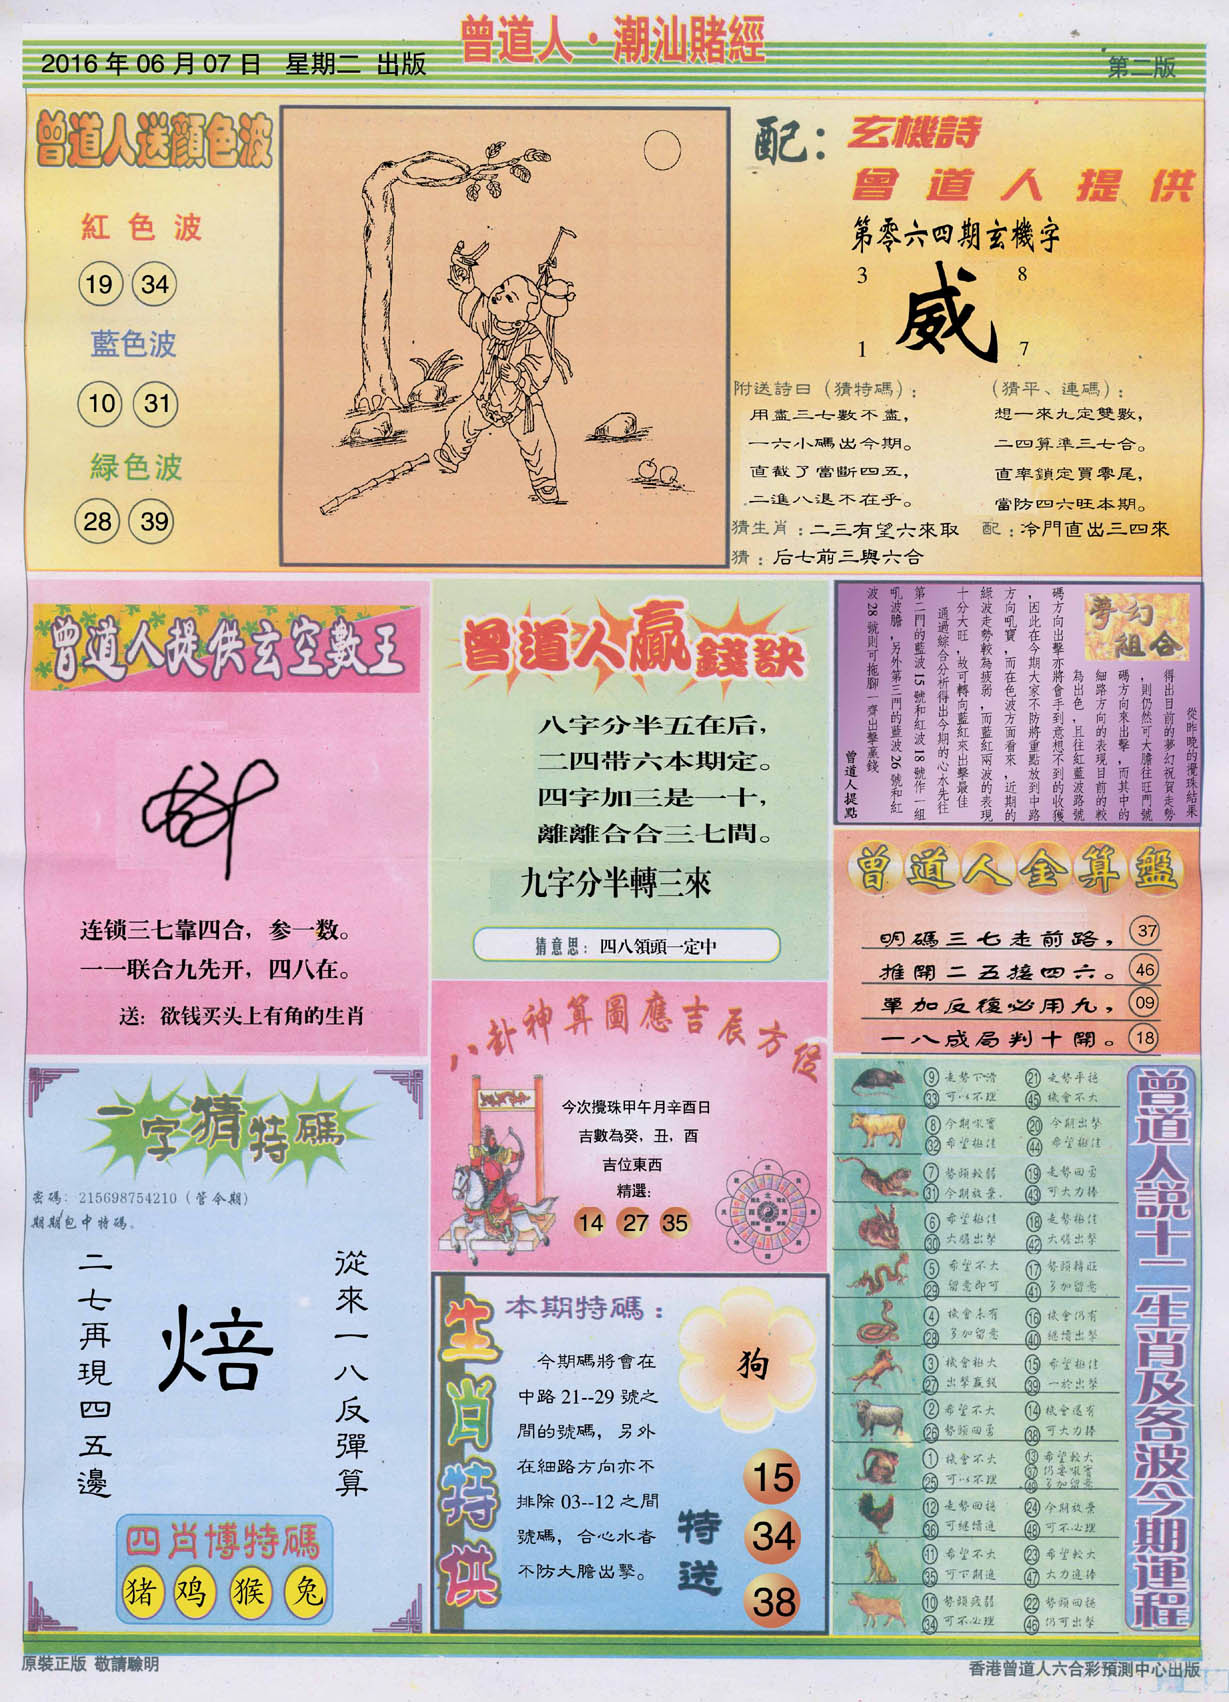 曾道人·潮汕賭經
2016 年 06 月 07 日 星期二 出版
第二版
曾道人送顏色波
紅色波
19 34
藍色波
10 31
緑色波
28 39
配：玄機詩
曾道人提供
第零六四期玄機字
3 8
威
1 7
附送詩曰（猜特碼）：
用盡三七數不盡，
一六小碼出今期。
直截了當斷四五，
二進八退不在乎。
（猜平、連碼）：
想一來九定雙數，
二四算準三七合。
直率鎖定買零尾，
當防四六旺本期。
猜生肖：二三有望六來取
配：冷門直出三四來
猜：后七前三與六合
曾道人提供玄空數王
连锁三七靠四合，参一数。
一一联合九先开，四八在。
送：欲钱买头上有角的生肖
曾道人贏錢訣
八字分半五在后，
二四带六本期定。
四字加三是一十，
離離合合三七間。
九字分半轉三來
猜意思：四八領頭一定中
夢幻組合
從昨晚的攪珠結果
得出目前的夢幻祝賀走勢
，則仍然可大膽往旺門號
碼方向來出擊，而其中的
細路方向的表現目前的較
為出色，且往紅藍波路號
碼方向出擊亦將會手到意想不到的收獲
，因此在今期大家不防將重點放到中路
方向吼寶，而在色波方面看來，近期的
綠波走勢較為疲弱，而藍紅兩波的表現
十分大旺，故可轉向藍紅來出擊最佳
通過綜合分析得出今期的心水先往
第二門的藍波 15 號和紅波 18 號作一組
吼波膽，另外第三門的藍波 26 號和紅
波 28 號則可拖腳一齊出擊贏錢
曾道人提點
曾道人金算盤
明碼三七走前路， 37
推開二五接四六。 46
單加反復必用九， 09
一八成局判十開。 18
八卦神算圖應吉辰方位
今次攪珠甲午月辛酉日
吉數為癸，丑，酉
吉位東西
精選：
14 27 35
一字猜特碼
密碼：215698754210（管令期）
期期包中特碼。
從來一八反彈算
焙
二七再現四五邊
四肖博特碼
猪 鸡 猴 兔
生肖特供
本期特碼：
今期碼將會在
中路 21--29 號之
間的號碼，另外
在細路方向亦不
排除 03--12 之間
號碼，合心水者
不防大膽出擊。
狗
特送
15
34
38
曾道人說十二生肖及各波今期運程
9 走勢下滑 21 走勢平穩
33 可以不理 45 機會不大
8 今期吼實 20 今期出擊
32 希望極佳 44 希望極佳
7 勢頭較弱 19 走勢回勇
31 今期放棄 43 可大力捧
6 希望極佳 18 走勢極佳
30 大膽出擊 42 大膽出擊
5 希望不大 17 勢頭轉旺
29 留意即可 41 多加留意
4 機會未有 16 機會仍有
28 多加留意 40 繼續出擊
3 機會極大 15 希望極佳
27 出擊贏錢 39 一於出擊
2 希望不大 14 機會還有
26 勢頭回勇 38 可大力捧
1 機會不大 13 希望較大
25 可以不理 37 仍要吼實
49 多加留意
12 走勢回穩 24 今期放棄
36 可繼續追 48 可不必理
11 希望不大 23 希望較大
35 可下期追 47 大力追捧
10 勢頭疲弱 22 勢頭回穩
34 可不必理 46 仍可出擊
原裝正版 敬請驗明
香港曾道人六合彩預測中心出版